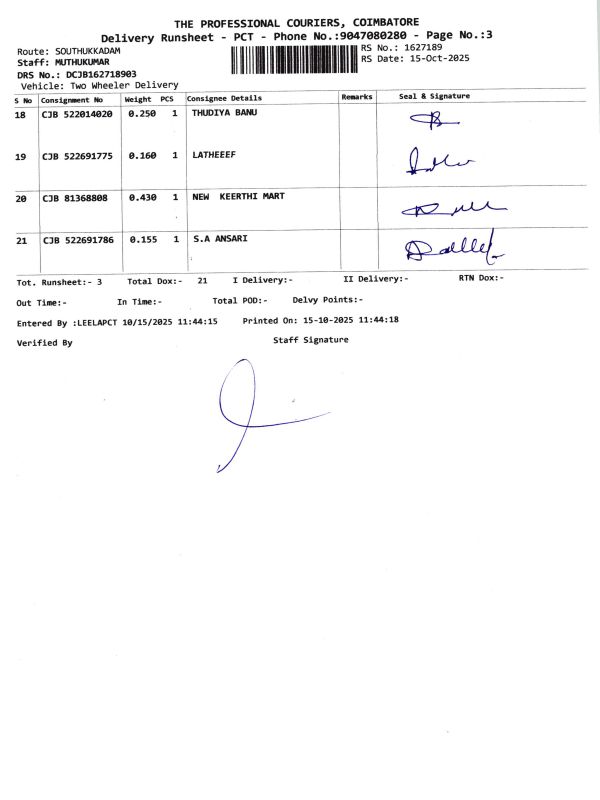 THE PROFESSIONAL COURIERS, COIMBATORE
Delivery Runsheet - PCT - Phone No.:9047080280 - Page No.:3
Route: SOUTHUKKADAM RS No.: 1627189
Staff: MUTHUKUMAR RS Date: 15-Oct-2025
DRS No.: DCJB162718903
Vehicle: Two Wheeler Delivery
S No Consignment No Weight PCS Consignee Details Remarks Seal & Signature
18 CJB 522014020 0.250 1 THUDIYA BANU
19 CJB 522691775 0.160 1 LATHEEEF
20 CJB 81368808 0.430 1 NEW KEERTHI MART
21 CJB 522691786 0.155 1 S.A ANSARI
Tot. Runsheet:- 3 Total Dox:- 21 I Delivery:- II Delivery:- RTN Dox:-
Out Time:- In Time:- Total POD:- Delvy Points:-
Entered By :LEELAPCT 10/15/2025 11:44:15 Printed On: 15-10-2025 11:44:18
Verified By Staff Signature